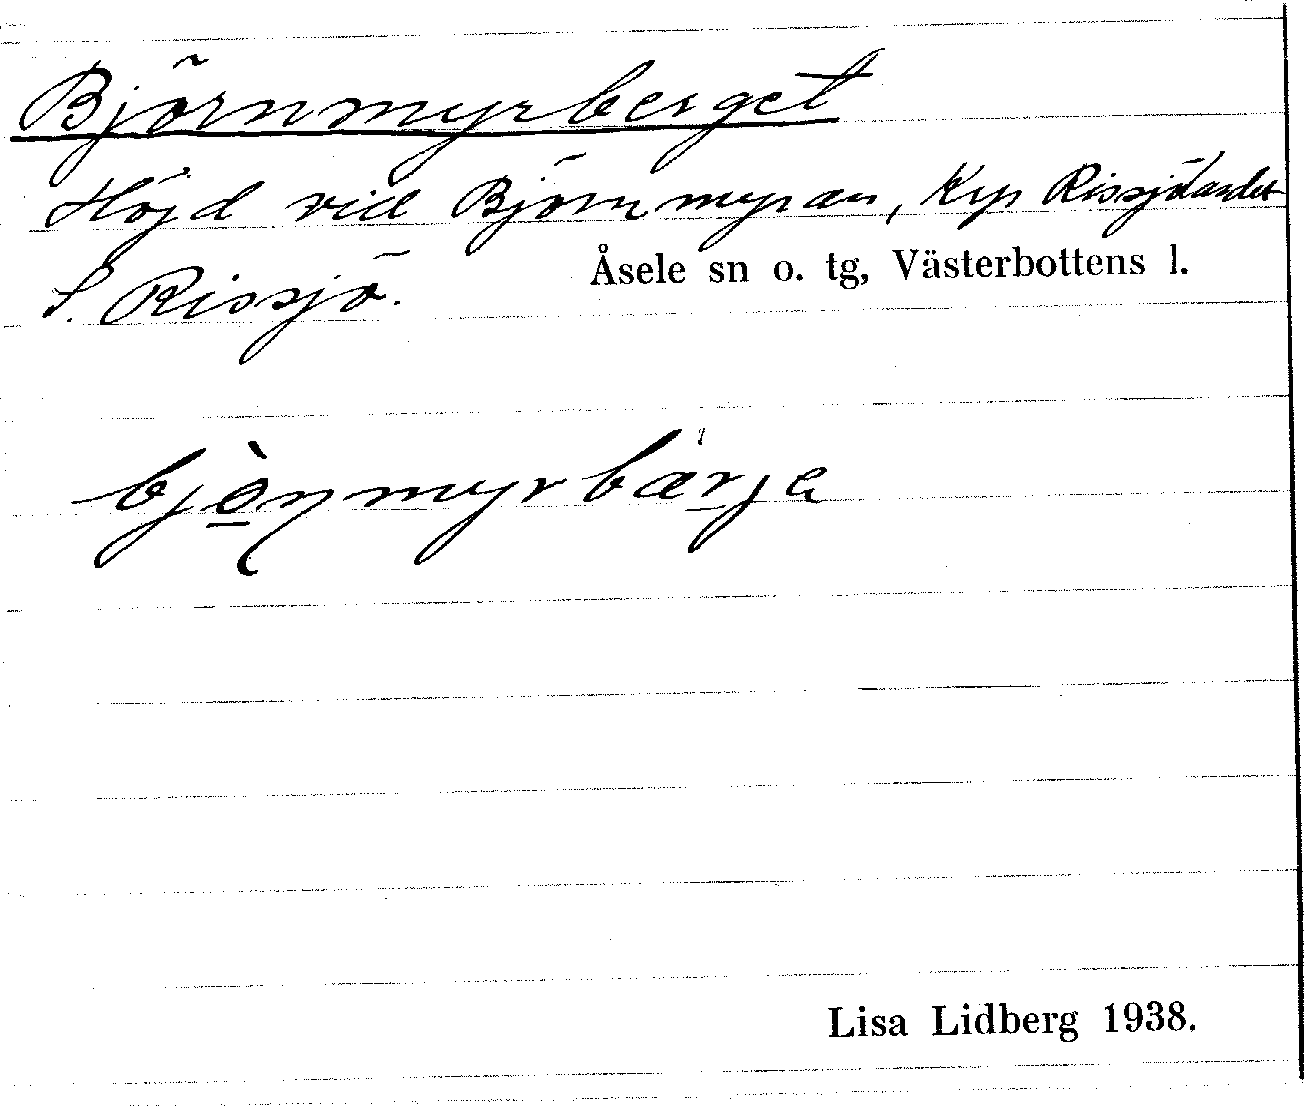 Björnmyrberget
Höjd vid Björnmyran, Kyr Rissjölandet
S. Rissjö.
Åsele sn o. tg, Västerbottens l.
bjò̱ɳmyrbæṟja
Lisa Lidberg 1938.